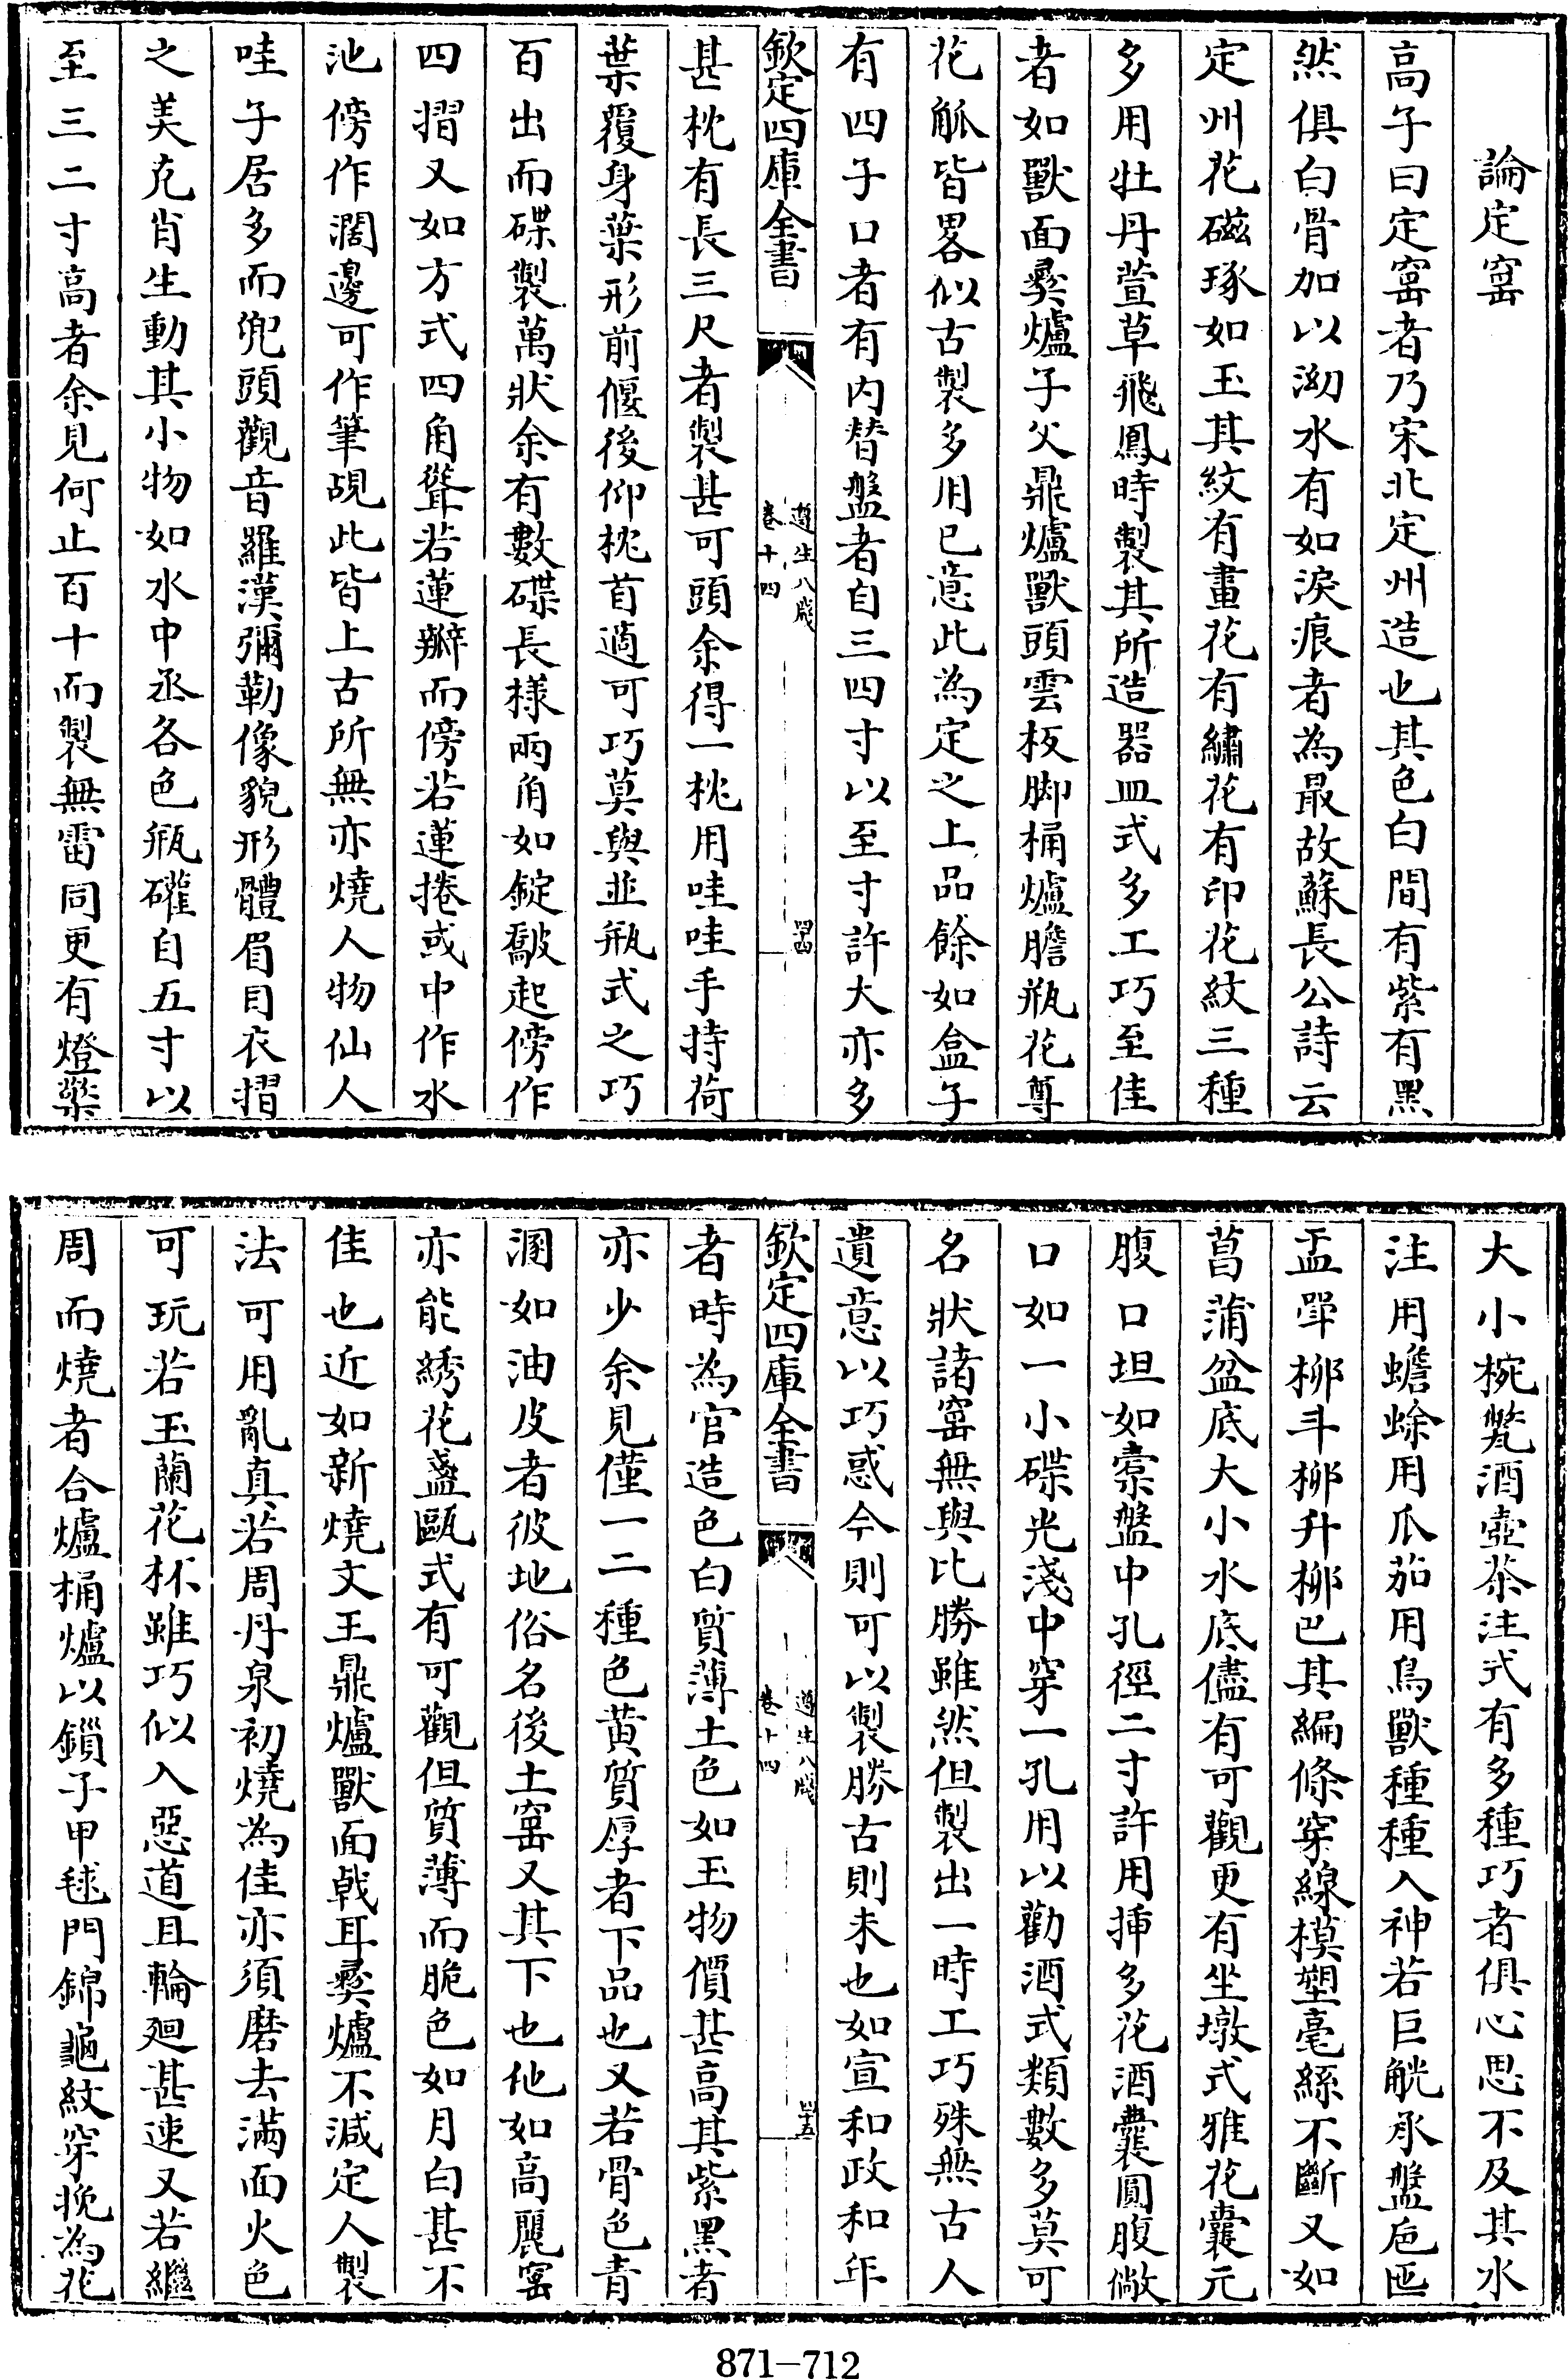 論定窰
高子曰定窰者乃宋北定州造也其色白間有紫有黑
然俱白骨加以泑水有如淚痕者為最故蘇長公詩云
定州花磁琢如玉其紋有畫花有繡花有印花紋三種
多用牡丹萱草飛鳳時製其所造器皿式多工巧至佳
者如獸面彜爐子父鼎爐獸頭雲板脚桶爐膽瓶花尊
花觚皆畧似古製多用已意此為定之上品餘如盒子
有四子口者有內替盤者自三四寸以至寸許大亦多
欽定四庫全書
遵生八牋
卷十四
四十四
甚枕有長三尺者製甚可頭余得一枕用哇哇手持荷
葉覆身葉形前偃後仰枕首適可巧莫與並瓶式之巧
百出而碟製萬狀余有數碟長樣兩角如錠翻起傍作
四摺又如方式四角聳若蓮瓣而傍若蓮捲或中作水
池傍作濶邊可作筆硯此皆上古所無亦燒人物仙人
哇子居多而兜頭觀音羅漢彌勒像貌形體眉目衣摺
之美克肖生動其小物如水中丞各色瓶礶自五寸以
至三二寸高者余見何止百十而製無雷同更有燈檠
大小椀甃酒壺茶注式有多種巧者俱心思不及其水
注用蟾蜍用瓜茄用鳥獸種種入神若巨觥承盤巵匜
盂斝柳斗柳升柳巴其編條穿線模塑毫絲不斷又如
菖蒲盆底大小水底儘有可觀更有坐墩式雅花囊元
腹口坦如橐盤中孔徑二寸許用揷多花酒囊圓腹敞
口如一小碟光淺中穿一孔用以勸酒式類數多莫可
名狀諸窰無與比勝雖然但製出一時工巧殊無古人
遺意以巧惑今則可以製勝古則未也如宣和政和年
欽定四庫全書
遵生八牋
卷十四
四十五
者時為官造色白質薄土色如玉物價甚高其紫黑者
亦少余見僅一二種色黄質厚者下品也又若骨色青
溷如油皮者彼地俗名後土窰又其下也他如高麗窰
亦能綉花盞甌式有可觀但質薄而脆色如月白甚不
佳也近如新燒文王鼎爐獸面戟耳彜爐不減定人製
法可用亂真若周丹泉初燒為佳亦須磨去滿面火色
可玩若玉蘭花杯雖巧似入惡道且輪廻甚速又若繼
周而燒者合爐桶爐以鎻子甲毬門錦龜紋穿挽為花
871-712